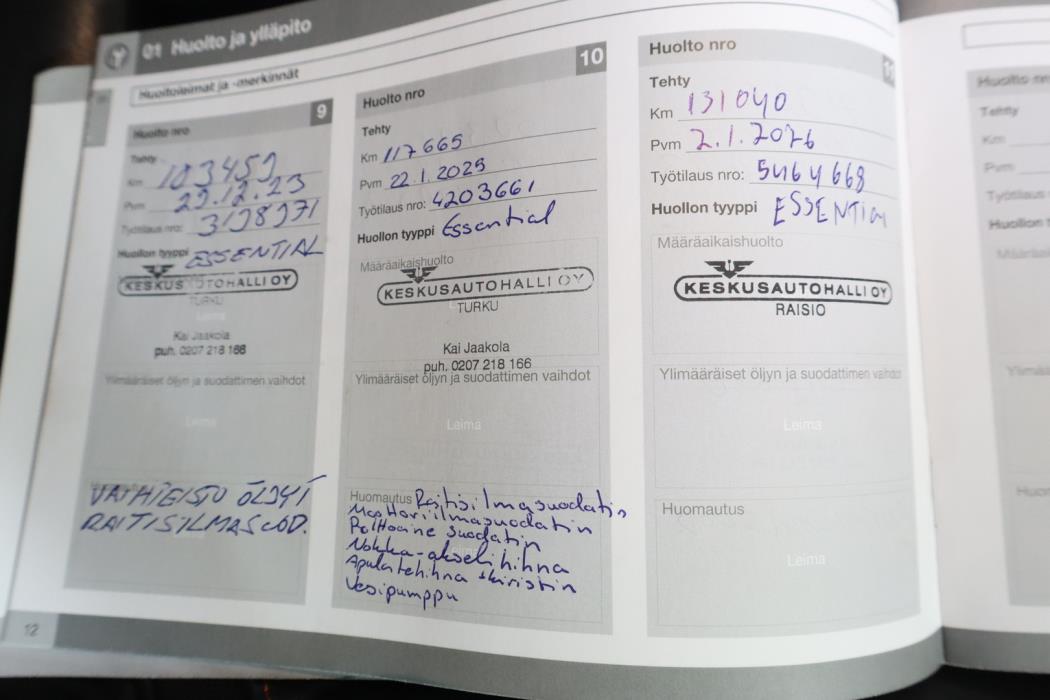 01 Huolto ja ylläpito
Huoltoleimat ja -merkinnät
Huolto nro 9
Tehty
Km 103459
Pvm 29.12.23
Työtilaus nro: 3198971
Huollon tyyppi ESSENTIAL
KESKUSAUTOHALLI OY
TURKU
Leima
Kai Jaakola
puh. 0207 218 166
Ylimääräiset öljyn ja suodattimen vaihdot
Leima
VAIHTEISTO ÖLJYT
RAITISILMASUOD.
12
Huolto nro 10
Tehty
Km 117665
Pvm 22.1.2025
Työtilaus nro: 4203661
Huollon tyyppi Essential
Määräaikaishuolto
KESKUSAUTOHALLI OY
TURKU
Kai Jaakola
puh. 0207 218 166
Ylimääräiset öljyn ja suodattimen vaihdot
Leima
Huomautus Raitisilmasuodatin
Moottoriilmasuodatin
Polttoaine suodatin
Nokka-akseli hihna
Apulaitehihna + kiristin
Vesipumppu
Huolto nro
Tehty
Km 131040
Pvm 2.1.2026
Työtilaus nro: 5464668
Huollon tyyppi ESSENTIAL
Määräaikaishuolto
KESKUSAUTOHALLI OY
RAISIO
Ylimääräiset öljyn ja suodattimen vaihdot
Leima
Huomautus
Leima
Huolto nro
Tehty
Km
Pvm
Työtilaus
Huollon